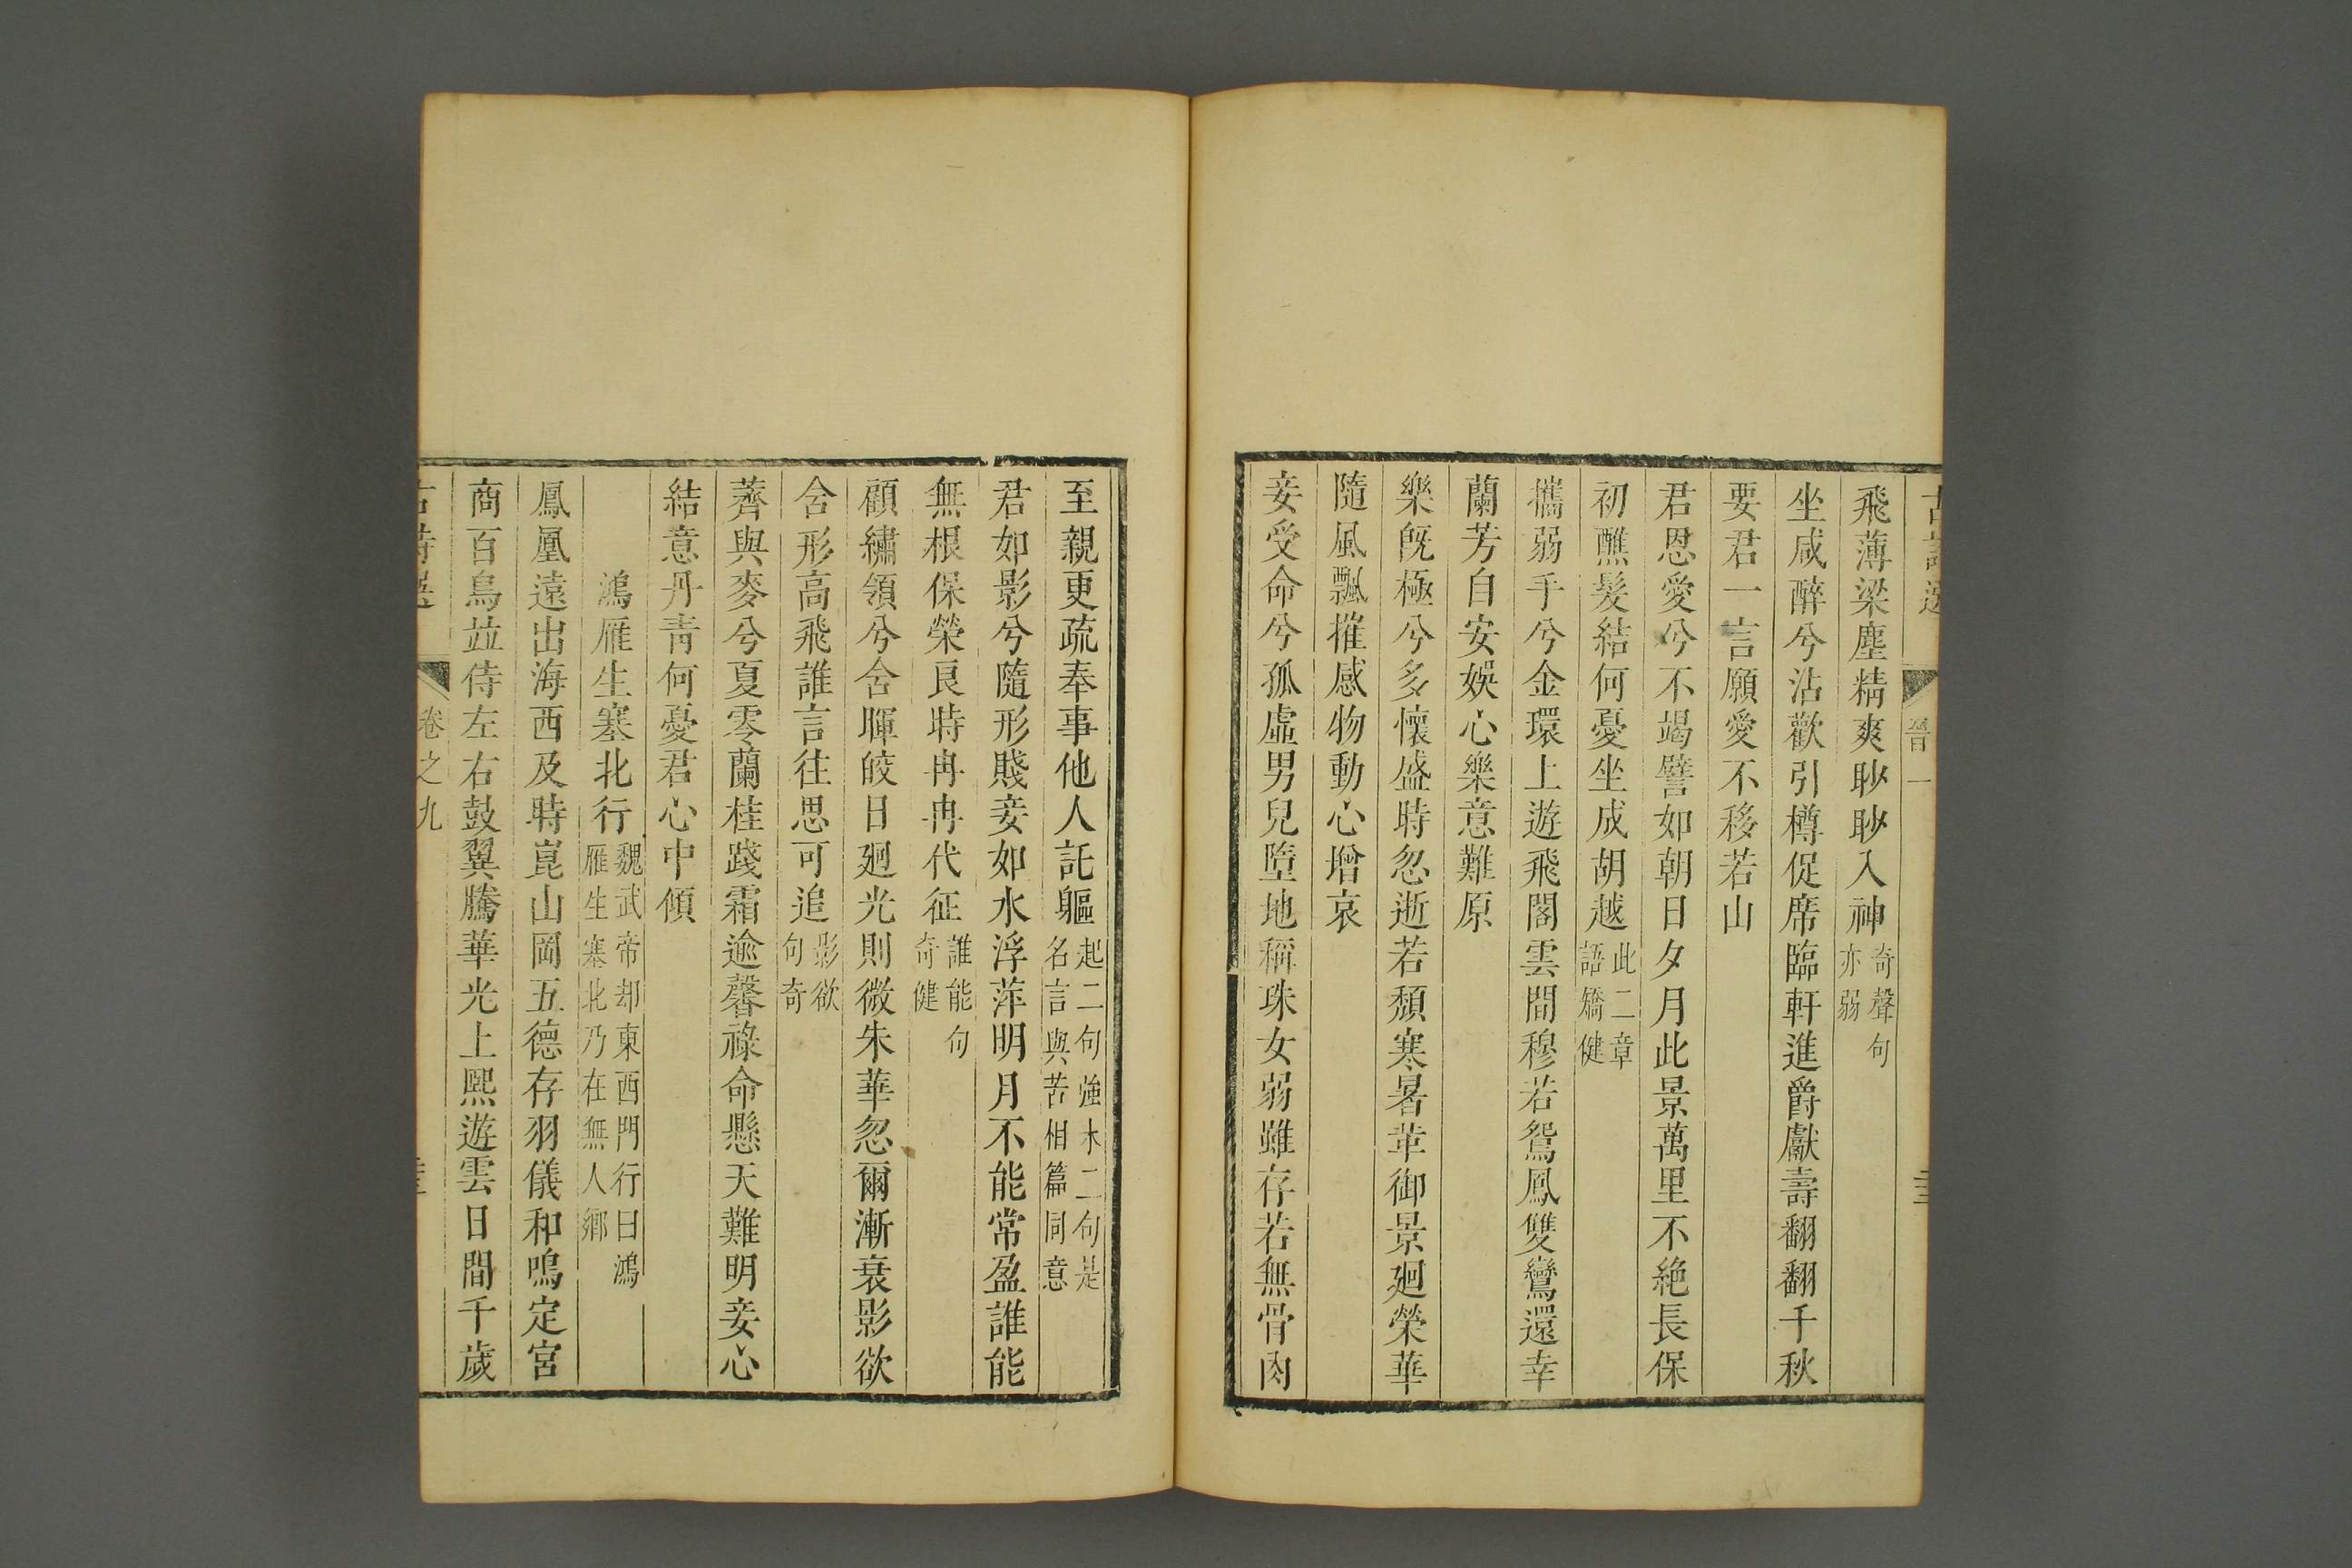 古詩選 晉一
飛薄梁塵精爽眇眇入神奇聲句亦弱
坐咸醉兮沾歡引樽促席臨軒進爵獻壽翻翻千秋
要君一言願愛不移若山
君恩愛兮不竭譬如朝日夕月此景萬里不絶長保
初醮髮結何憂坐成胡越此二章語矯健
攜弱手兮金環上遊飛閣雲間穆若鴛鳳雙鸞還幸
蘭芳自安娛心樂意難原
樂旣極兮多懷盛時忽逝若頽寒暑革御景廻榮華
隨風飄摧感物動心增哀
妾受命兮孤虛男兒墮地稱珠女弱雖存若無骨肉
至親更疏奉事他人託軀起二句強末二句是名言與苦相篇同意
君如影兮隨形賤妾如水浮萍明月不能常盈誰能
無根保榮良時冉冉代征誰能句奇健
顧繡領兮含暉皎日廻光則微朱華忽爾漸衰影欲
含形高飛誰言往思可追影欲句奇
薺與麥兮夏零蘭桂踐霜逾馨祿命懸天難明妾心
結意丹青何憂君心中傾
鴻雁生塞北行魏武帝却東西門行曰鴻雁生塞北乃在無人鄉
鳳凰遠出海西及時崑山岡五德存羽儀和鳴定宮
商百鳥竝侍左右鼓翼騰華光上熙遊雲日間千歲
古詩選 卷之九